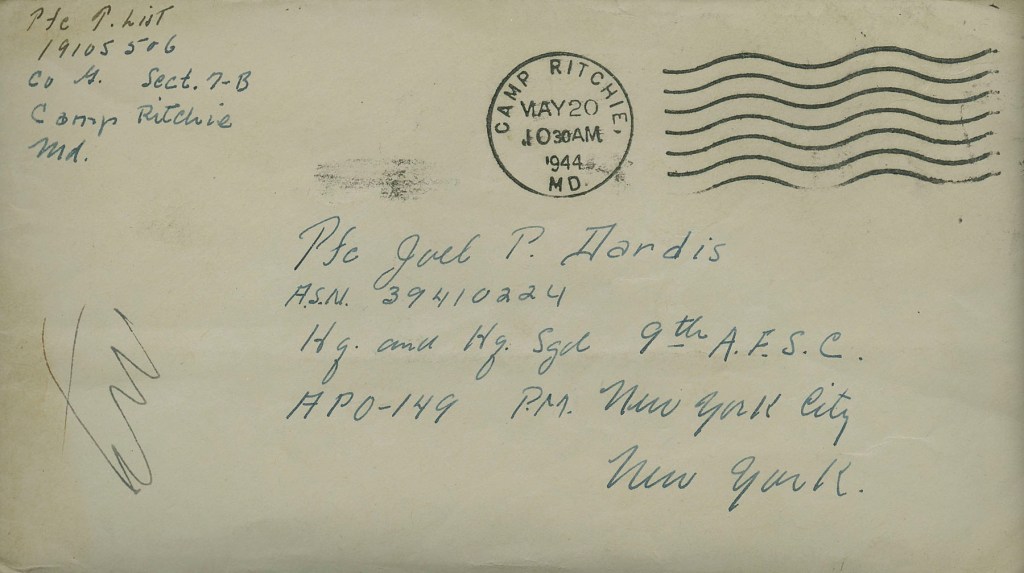 Pfc P. List
19105506
Co G. Sect. 7-B
Camp Ritchie
Md.
CAMP RITCHIE,
MAY 20
10 30 AM
1944
MD.
Pfc Joel P. Dardis
A.S.N. 39410224
Hq. and Hq. Sqd 9th A.F.S.C.
APO-149 P.M. New York City
New York.